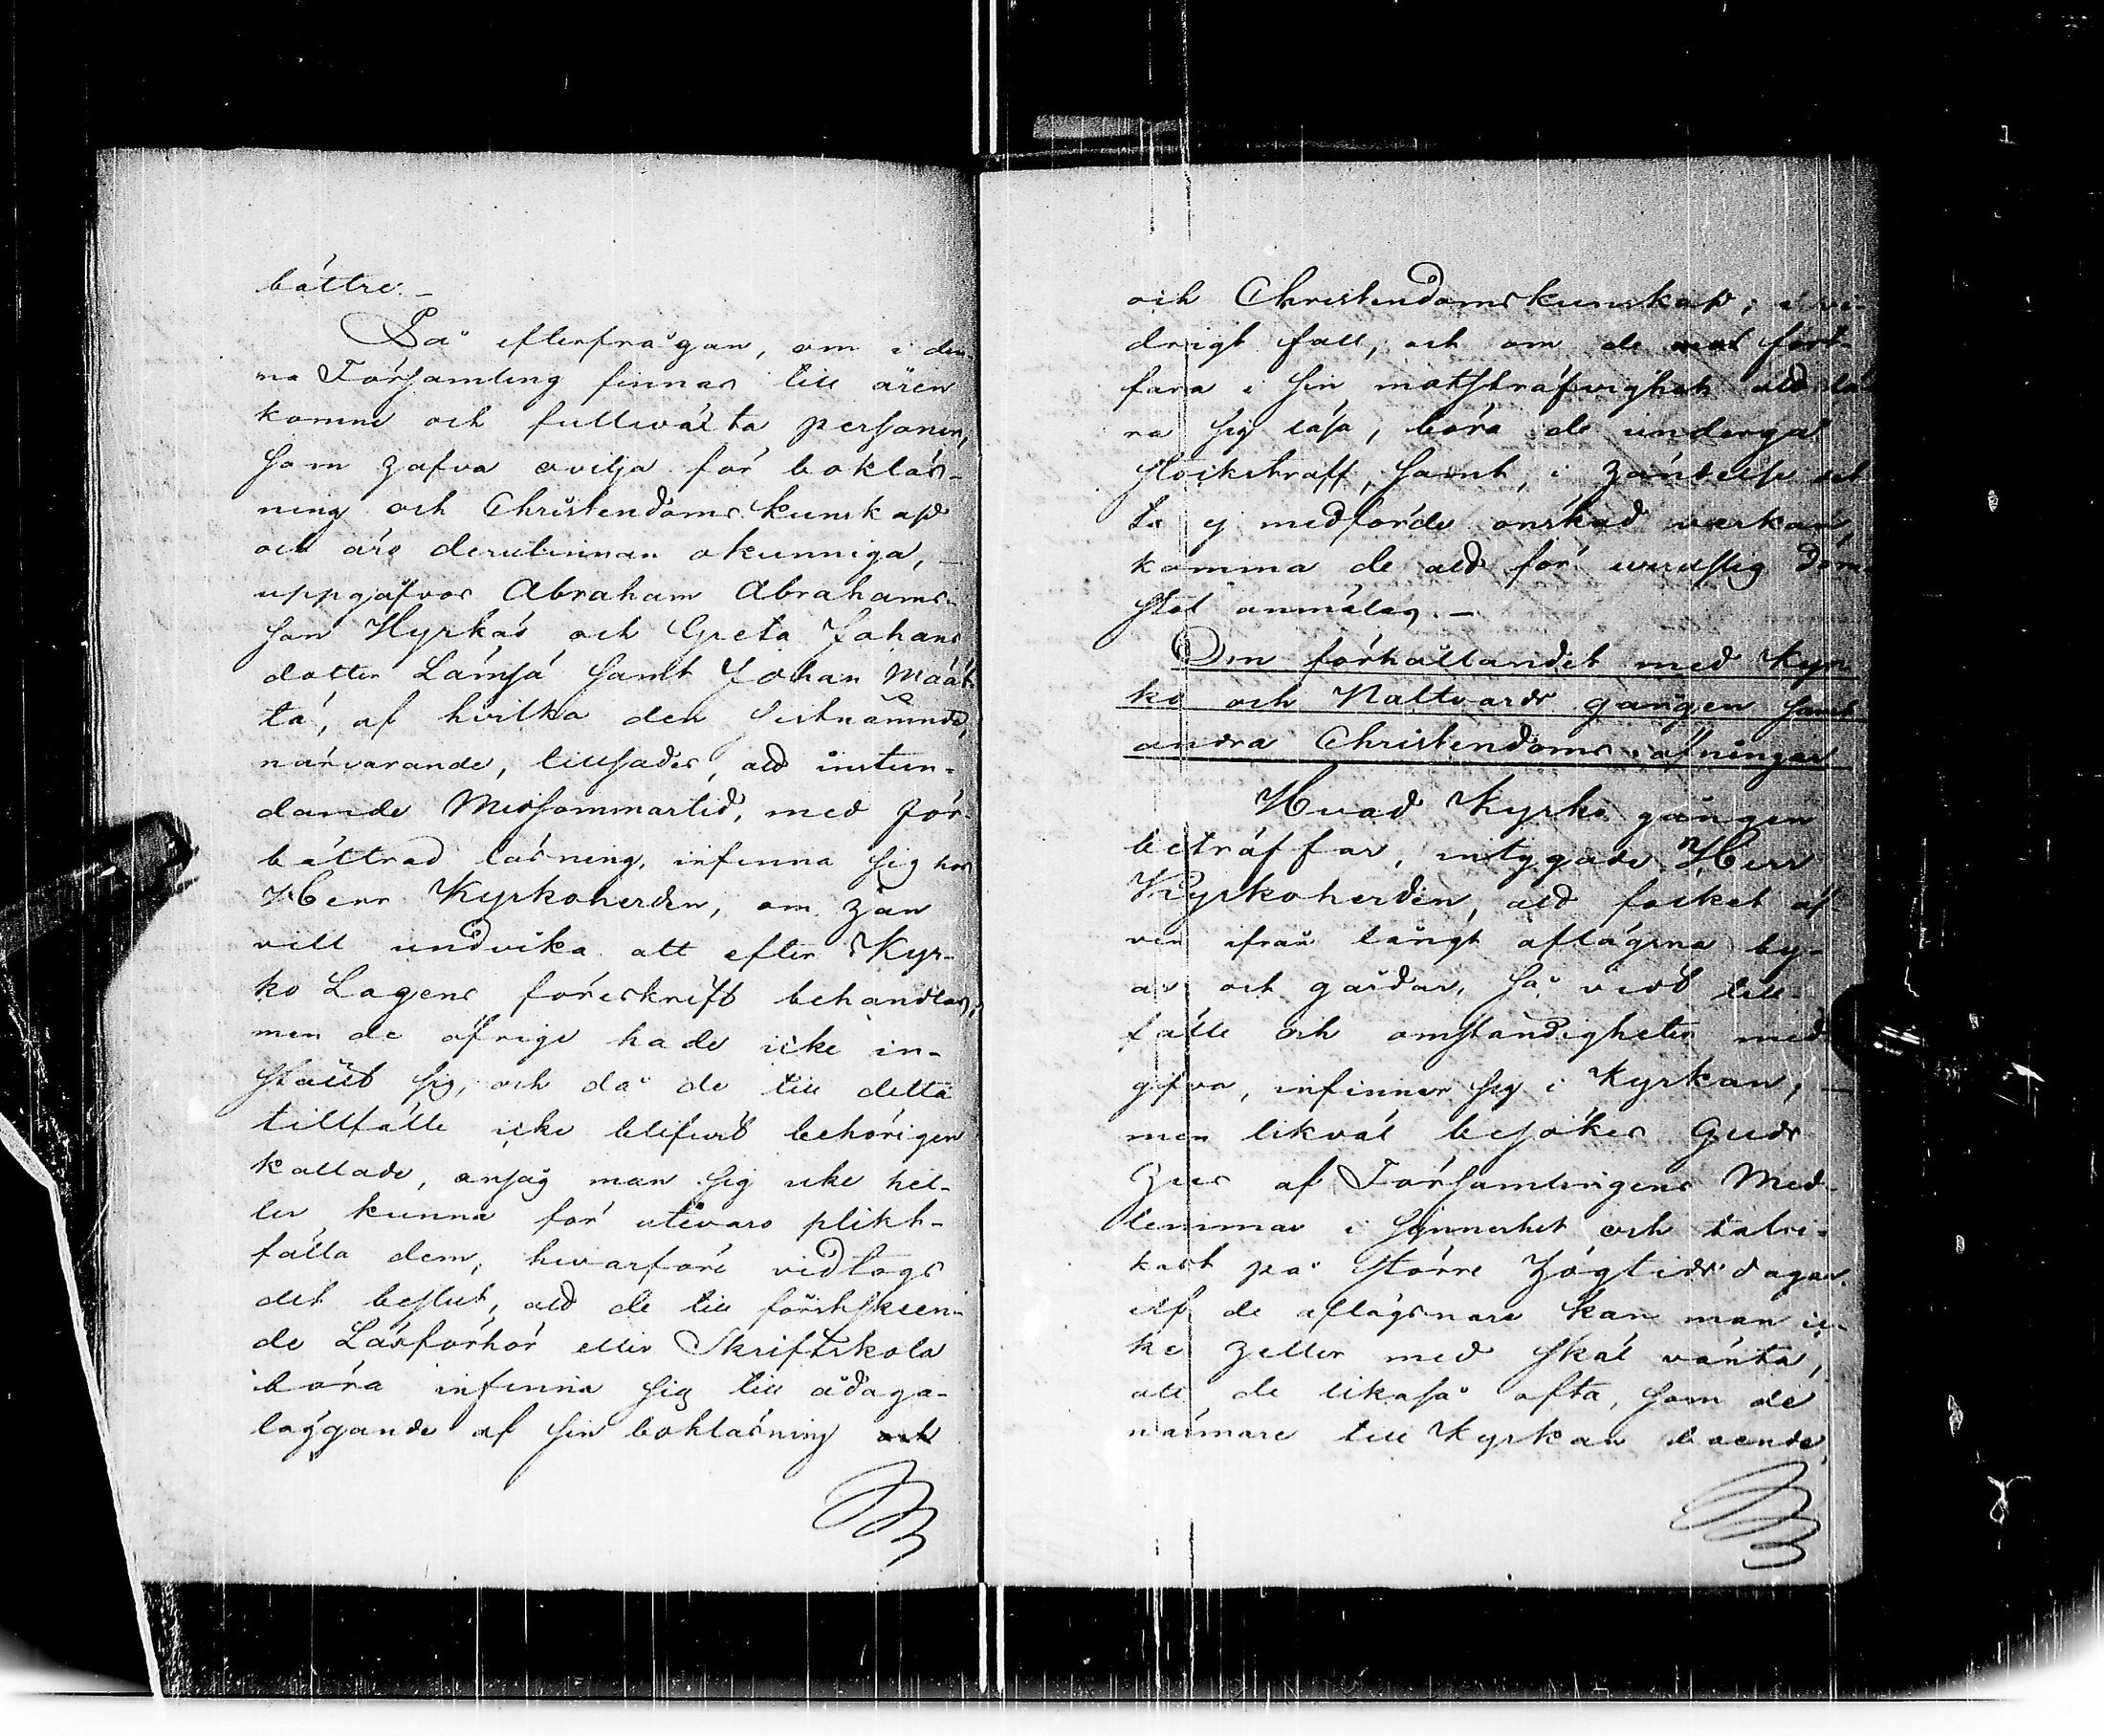 bättre. _
På efterfrågan, om i den-
na Församling finnas till åren
komne och fullwäxta personer,
som hafva ovilja för bokläs-
ning och Christendoms kunskap
och äro derutinnan okunniga, _
uppgåfvos Abraham Abrahams-
son Hyrkäs och Greta Johans
dotter Lämsä samt Johan Määt-
tä, af hvilka den sistnämnde,
närvarande, tillsades, att instun-
dande Midsommartid, med för-
bättrad läsning, infinna sig hos
Herr Kyrkoherden, om han
vill undvika att efter Kyr-
ko Lagens föreskrift behandlas;
men de öfrige hade icke in-
ställt sig, och då de till detta
tillfälle icke blifvit behörigen
kallade, ansåg man sig icke hel-
ler kunna för utevaro plikt-
fälla dem, hwarföre vidtogs
det beslut, att de till förstskeen-
de Läsförhör eller Skriftskola
böra infinna sig till ådaga-
läggande af sin bokläsning och
och Christendomskunskap; i vi-
drigt fall, och om de fort-
fara i sin motsträfvighet att lä-
ra sig läsa, böra de undergå
stockstraff, samt, i händelse det-
ta ej medförde önskad verkan,
komma de att för werldslig dom-
stol anmälas. _
Om förhållandet med Kyr-
ko och Nattvards gången samt
andra Christendoms öfningar
Hvad Kyrko gången
beträffar, intygade Herr
Kyrkoherden, att folket äf-
ven ifrån långt aflägsna by-
ar och gårdar, så vidt till-
fälle och omständigheter med-
gifva, infinner sig i Kyrkan; _
men likväl besökes Guds
hus af Församlingens Med-
lemmar i synnerhet och talri-
kast på större högtids dagar.
Af de aflägsnare kan man ic-
ke heller med skäl vänta,
att de likaså ofta, som de
närmare till Kyrkan boende,